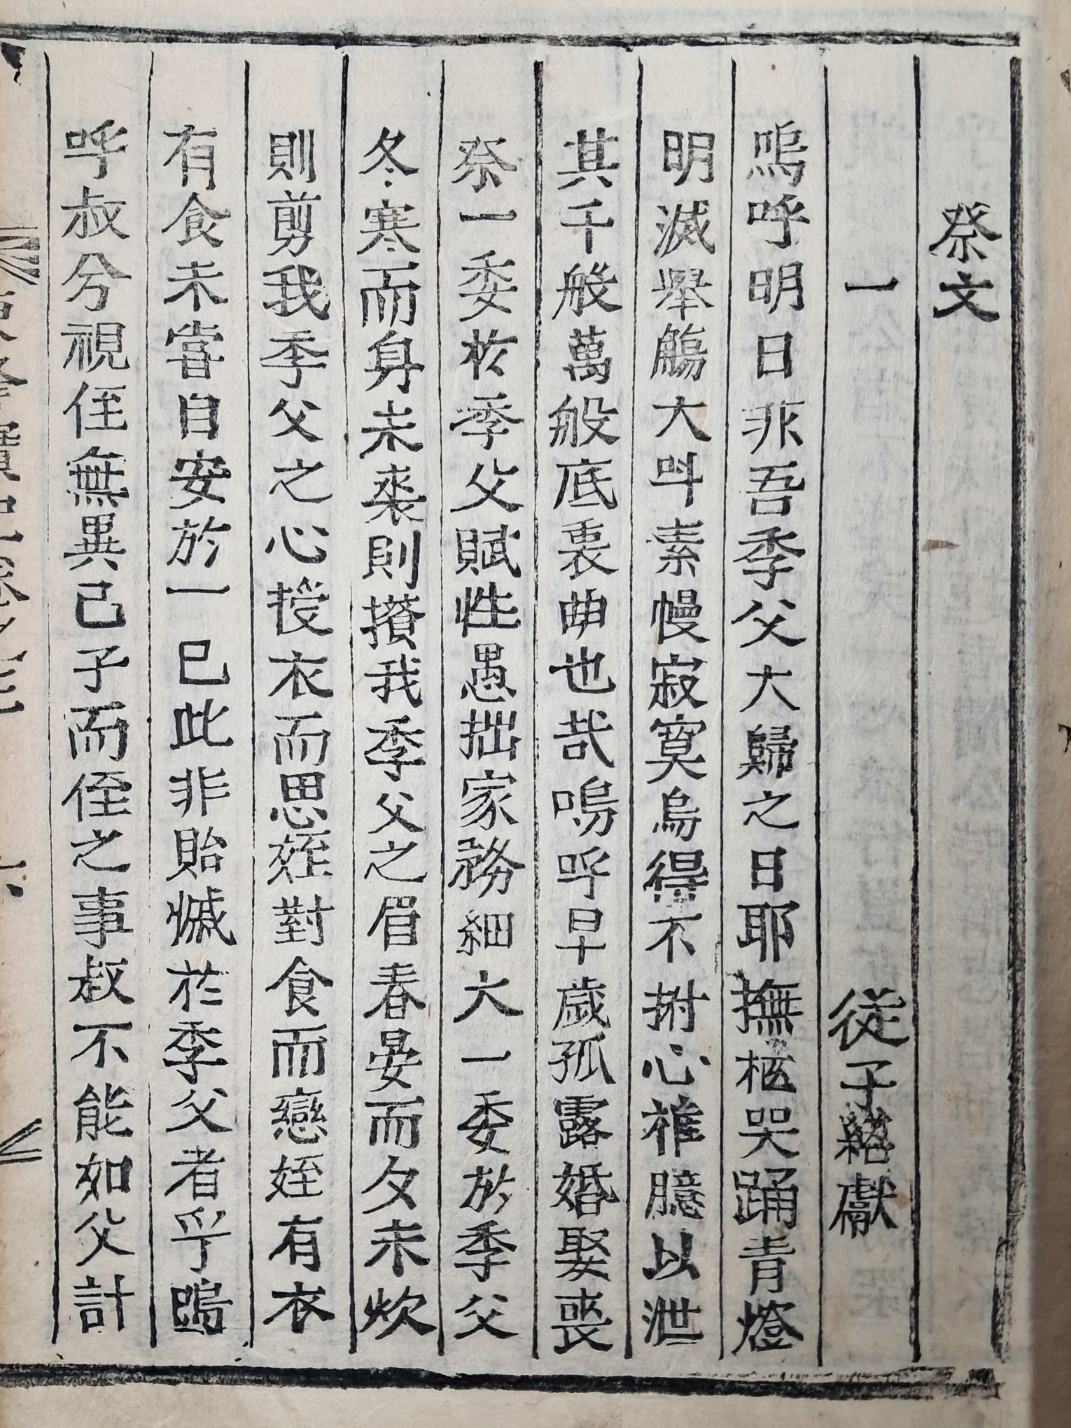 祭文
一　從子繼獻
嗚呼明日非吾季父大歸之日耶撫柩哭踊靑燈
明滅擧觴大呌素幔寂寞烏得不拊心椎臆以泄
其千般萬般底裏曲也哉嗚呼早歲孤露婚娶喪
祭一委於季父賦性愚拙家務細大一委於季父
冬寒而身未裘則攢我季父之眉春晏而夕未炊
則剪我季父之心授衣而思姪對食而戀姪有衣
有食未嘗自安於一己此非貽慽於季父者乎嗚
呼叔兮視侄無異己子而侄之事叔不能如父計